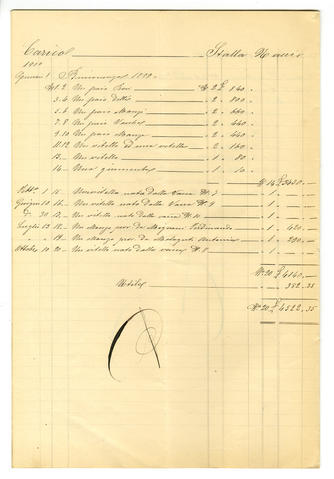 Carico Stalla
1900
Gennaio 1 Rimanenza 1900
No 1.2 Un paio Bovi No 2 £ 860
3.4 Un paio detti " 2 " 800
5.6 Un paio Manzi " 2 " 660
7.8 Un paio Vacche " 2 " 440
9.10 Un paio Manze " 2 " 440
11.12 Un vitello ed una vitella " 2 " 160
13 Un vitello " 1 " 80
14 Una " 1 " 10
No 14 £
1 15 Una vitella nata dalla Vacca No 7 " 1 "
Giugno 10 16 Un vitello nato dalla Vacca No 9 " 1 "
30 17 Un vitello nato dalla vacca No 10 " 1 "
Luglio 13 18 Un Manzo por. da Ferdinando " 1 " 420
" " 19 Un Manzo por. da " 1 " 290
Ottobre 10 20 Un vitello nato dalla vacca No 8 " 1 "
No 20 £ 4160
Utile 352.35
No 20 £ 4522.35